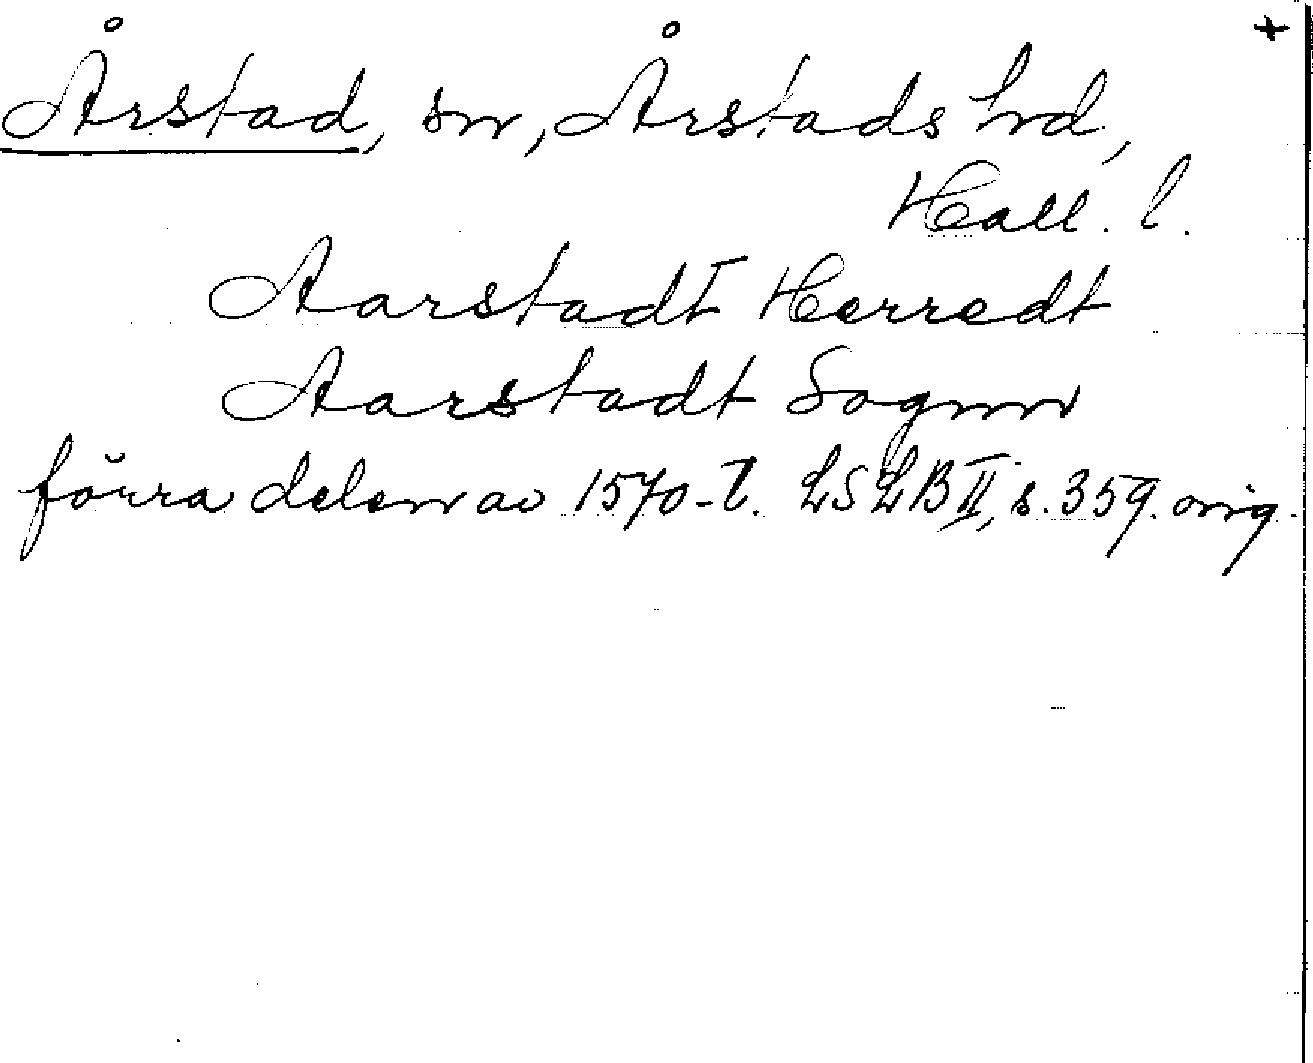 +
Årstad, sn, Årstads hd,
Hall. l.
Aarstadt Herredt
Aarstadt Sognn
förra delen av 1570-t. LSLB II, s. 359. orig.